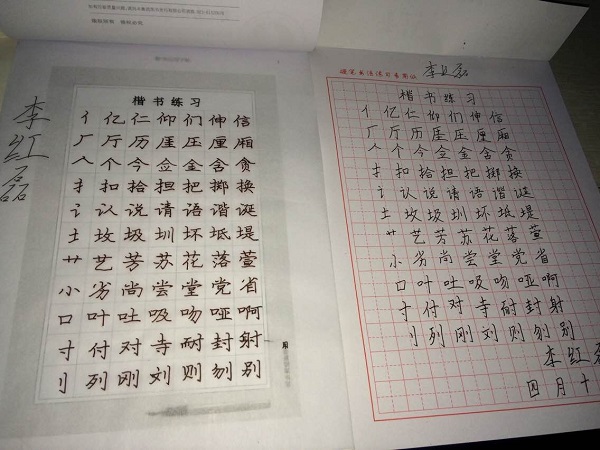 版权所有 侵权必究
李红磊
楷书练习
亻亿仁仰们伸信
厂厅历厓压厘厢
人个今佥金舍贪
扌扣拾担把掷换
讠认说请语谐诞
土坟圾圳坏坻堤
艹艺芳苏花落萱
小劣尚尝堂党省
口叶吐吸吻哑啊
寸付对寺耐封射
刂列刚刘则刎别
硬笔书法练习专用纸
李红磊
楷书练习
亻亿仁仰们伸信
厂厅历厓压厘厢
人个今佥金舍贪
扌扣拾担把掷换
讠认说请语谐诞
土坟圾圳坏坻堤
艹艺芳苏花落萱
小劣尚尝堂党省
口叶吐吸吻哑啊
寸付对寺耐封射
刂列刚刘则刎别
李红磊
四月十